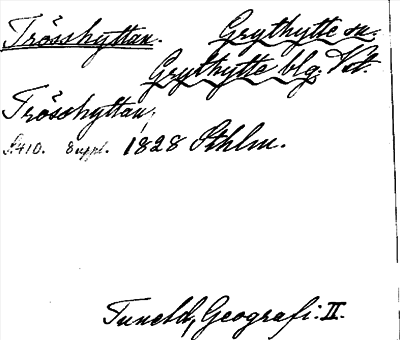 Trösshyttan. Grythytte sn.
Grythytte blg. Vstm.
Trösshyttan,
S. 410. Suppl. 1828 Sthlm.
Tuneld, Geografi. II.